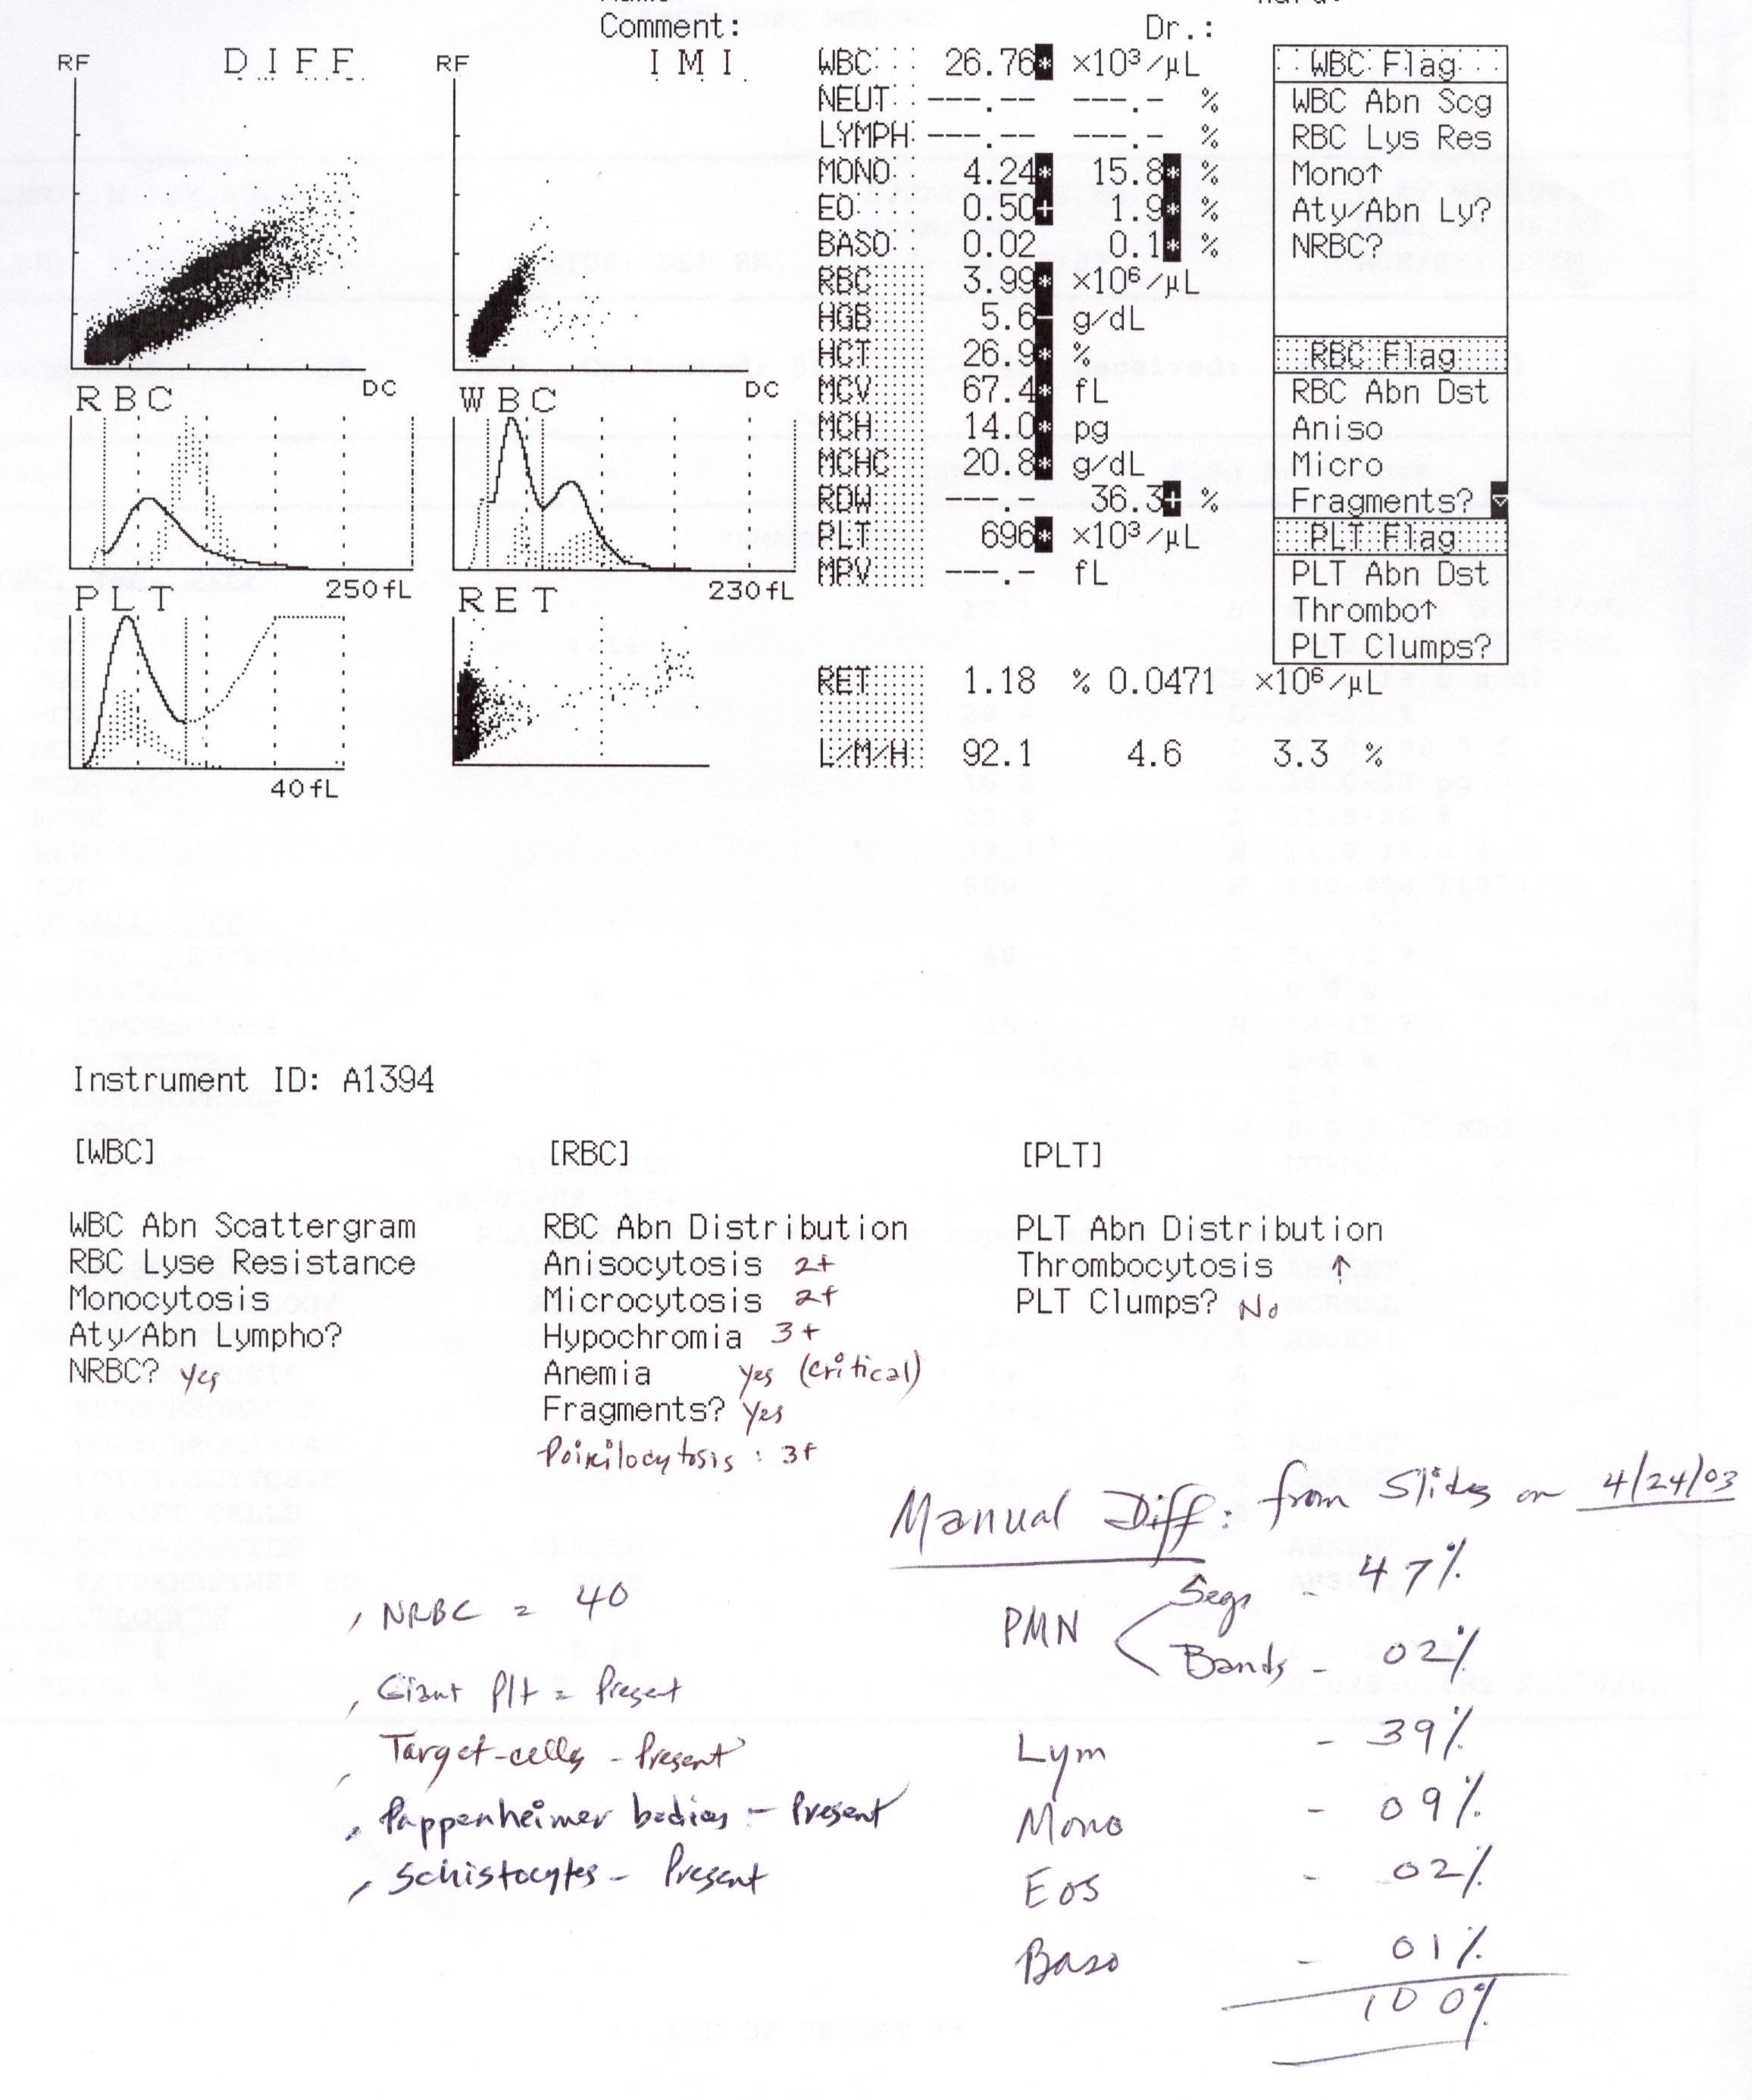 Comment:
Dr.:
RF
DIFF
RF
IMI
DC
DC
RBC
WBC
250fL
230fL
PLT
RET
40fL
WBC 26.76* ×10³/μL
NEUT ---.-- ---.- %
LYMPH ---.-- ---.- %
MONO 4.24* 15.8* %
EO 0.50+ 1.9* %
BASO 0.02 0.1* %
RBC 3.99* ×10⁶/μL
HGB 5.6- g/dL
HCT 26.9* %
MCV 67.4* fL
MCH 14.0* pg
MCHC 20.8* g/dL
RDW ---.- 36.3+ %
PLT 696* ×10³/μL
MPV ---.- fL
RET 1.18 % 0.0471 ×10⁶/μL
L/M/H 92.1 4.6 3.3 %
WBC Flag
WBC Abn Scg
RBC Lys Res
Mono↑
Aty/Abn Ly?
NRBC?
RBC Flag
RBC Abn Dst
Aniso
Micro
Fragments?
PLT Flag
PLT Abn Dst
Thrombo↑
PLT Clumps?
Instrument ID: A1394
[WBC]
WBC Abn Scattergram
RBC Lyse Resistance
Monocytosis
Aty/Abn Lympho?
NRBC? yes
[RBC]
RBC Abn Distribution
Anisocytosis 2+
Microcytosis 2+
Hypochromia 3+
Anemia yes (critical)
Fragments? yes
Poikilocytosis : 3+
[PLT]
PLT Abn Distribution
Thrombocytosis ↑
PLT Clumps? No
Manual Diff: from Slides on 4/24/03
PMN
Segs - 47%
Bands - 02%
Lym - 39%
Mono - 09%
Eos - 02%
Baso - 01%
100%
, NRBC = 40
, Giant Plt = Present
, Target-cells - Present
, Pappenheimer bodies - Present
, Schistocytes - Present